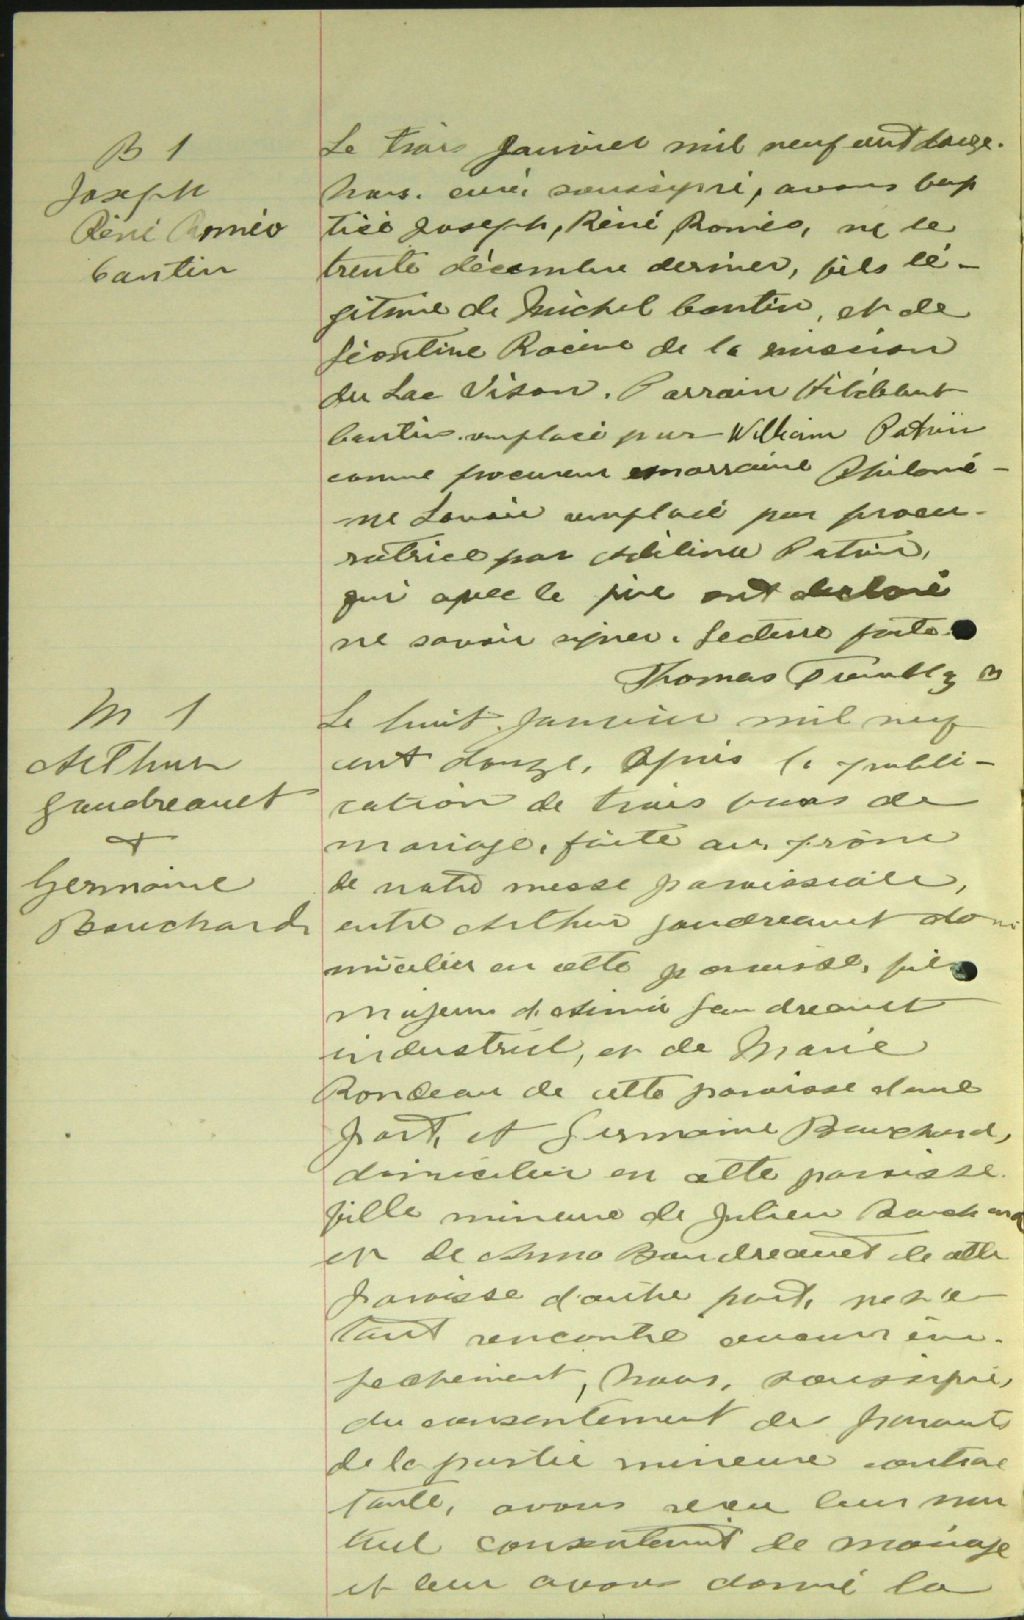 B 1
Joseph
Réné Roméo
Cantin
Le trois Janvier mil neuf cent douze.
Nous. curé soussigné, avons bap
tisé Joseph, Réné, Roméo, né le
trente décembre dernier, fils lé-
gitime de Michel Cantin, et de
Léontine Racine de la mission
du Lac Vison. Parrain
Cantin remplacé par William Patrie
comme procureur marraine Philomè-
ne Lavoie remplacé par procu-
ratrice par Adélina Patrie,
qui avec le père ont declaré
ne savoir signer. Lecture faite
Thomas Tremblay
M 1
Arthur
Gaudreault
+
Germaine
Bouchard
Le huit Janvier mil neuf
cent douze, Après la publi-
cation de trois bans de
mariage, faite au prône
de notre messe paroissiale,
entre Arthur Gaudreault do mi
micilier en cette paroisse, fils
majeur d'Aimé Gaudreault
industriel, et de Marie
Rondeau de cette paroisse d'une
part, et Germaine Bouchard,
domicilier en cette paroisse.
fille mineure de Julien Bouchard
et de Anna Baudreault de cette
paroisse d'autre part, ne s'é
tant rencontré aucun em-
pechement, Nous, soussigné,
du consentement des parants
de la partie mineure contrac
tante, avons reçu leur mu
tuel consentement de mariage
et leur avons donné la